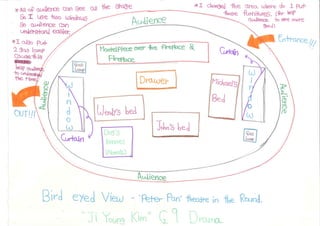 * Not all audience can see all the stage
So I use two windows
So audience can
understand easier.
* I also put
2 gas lamp
because this
help audience
to understand
the time.
* I changed this area where do I put
these furnitures, for help
audience to see more
Audience
Entrance!!!
Curtain
Mantelpiece over the fireplace &
Fireplace.
Gas
Lamp
Window
Drawer
Michael's
Bed
Window
Audience
Audience
Wendy's bed
John's bed
OUT!!!
Curtain
Gas
Lamp
Audience
Bird eyed View - "Peter Pan" theatre in the Round.
- "Ji Young Kim" G9 Drama